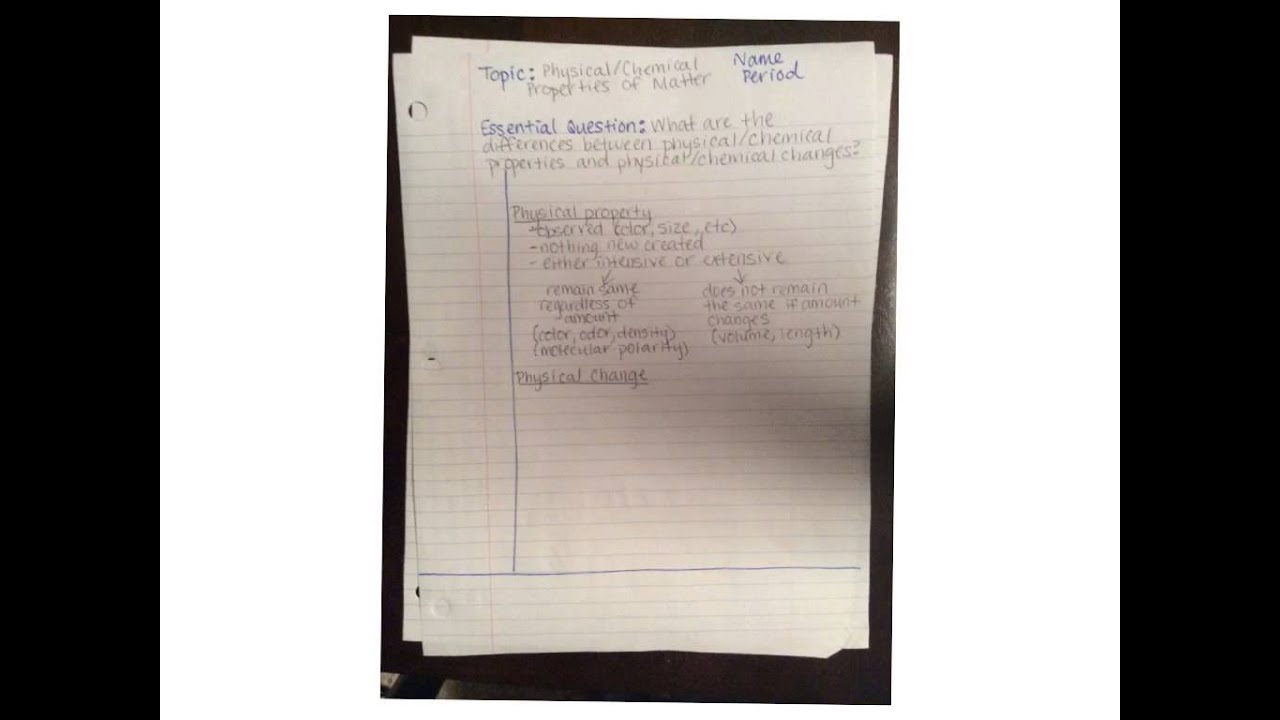 Topic: Physical/Chemical Name
Properties of Matter Period
Essential Question: What are the
differences between physical/chemical
properties and physical/chemical changes?
Physical property
- observed (color, size, etc)
- nothing new created
- either intensive or extensive
remain same does not remain
regardless of the same if amount
amount changes
(color, odor, density) (volume, length)
(molecular polarity)
Physical Change